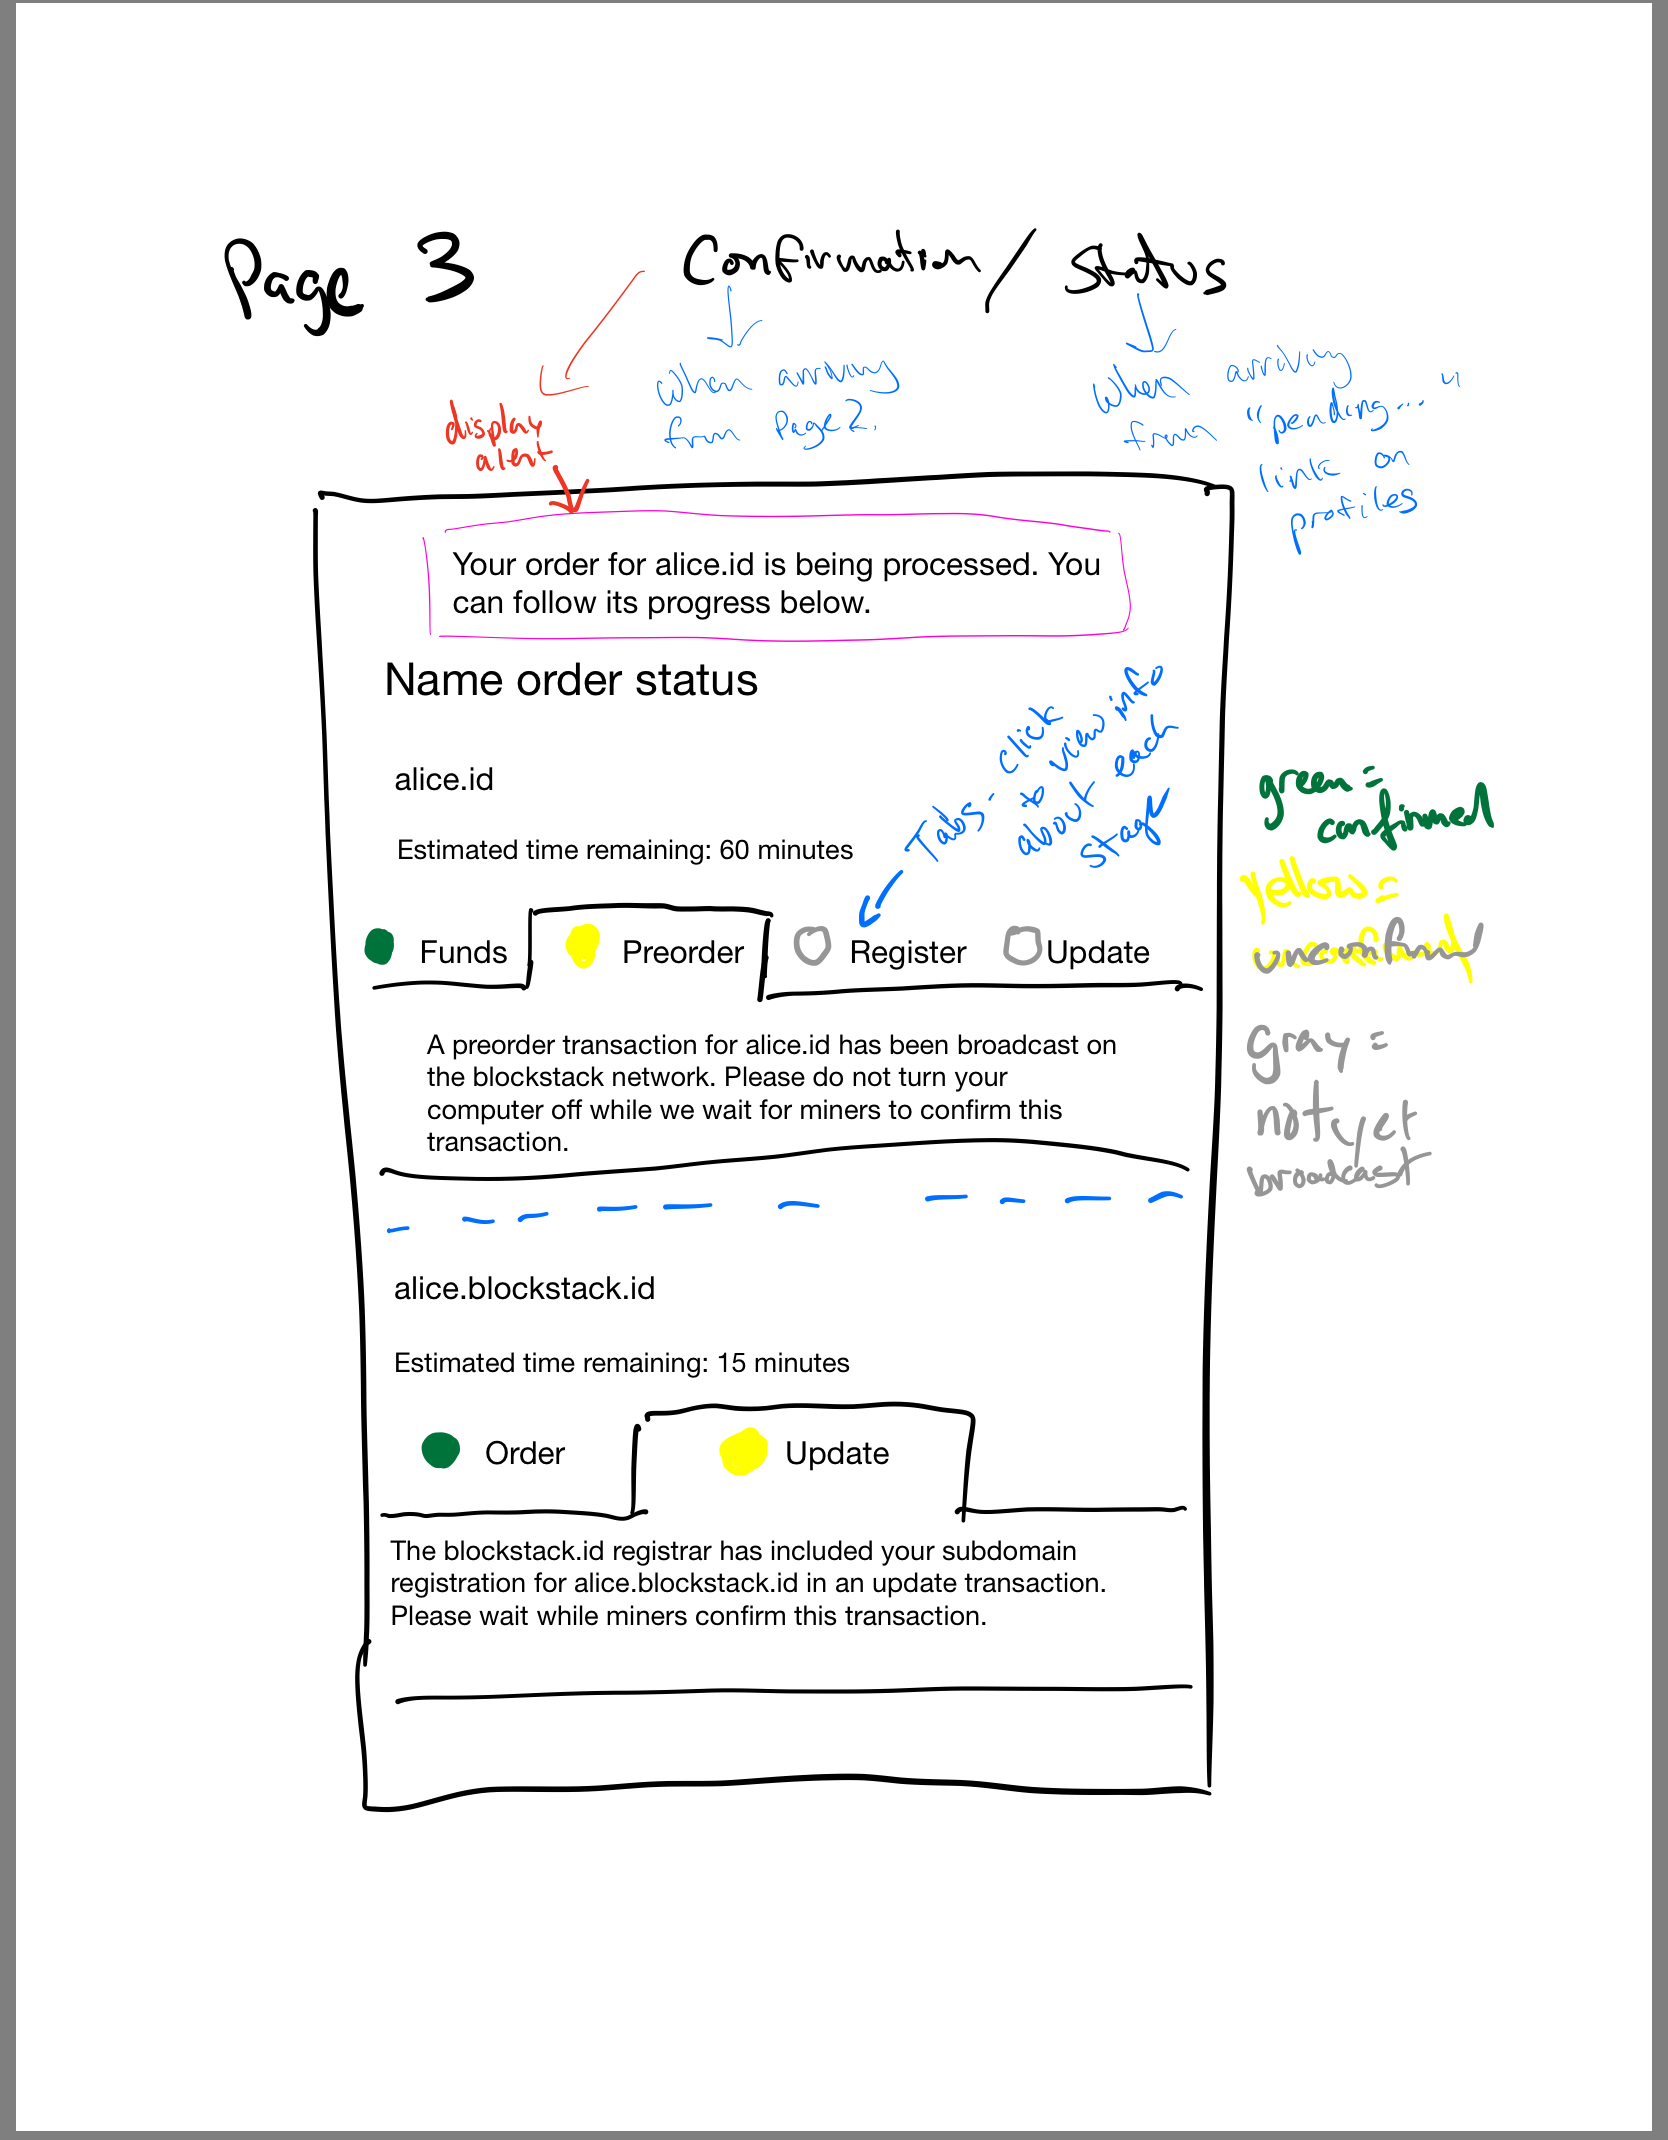 Page 3
Confirmation / Status
when arriving
from Page 2.
when arriving
from "pending..."
link on
profiles
display
alert
Your order for alice.id is being processed. You
can follow its progress below.
Name order status
alice.id
Estimated time remaining: 60 minutes
Tabs - click
to view info
about each
stage
green =
confirmed
yellow =
unconfirmed
gray =
not yet
broadcast
Funds Preorder Register Update
A preorder transaction for alice.id has been broadcast on
the blockstack network. Please do not turn your
computer off while we wait for miners to confirm this
transaction.
alice.blockstack.id
Estimated time remaining: 15 minutes
Order Update
The blockstack.id registrar has included your subdomain
registration for alice.blockstack.id in an update transaction.
Please wait while miners confirm this transaction.